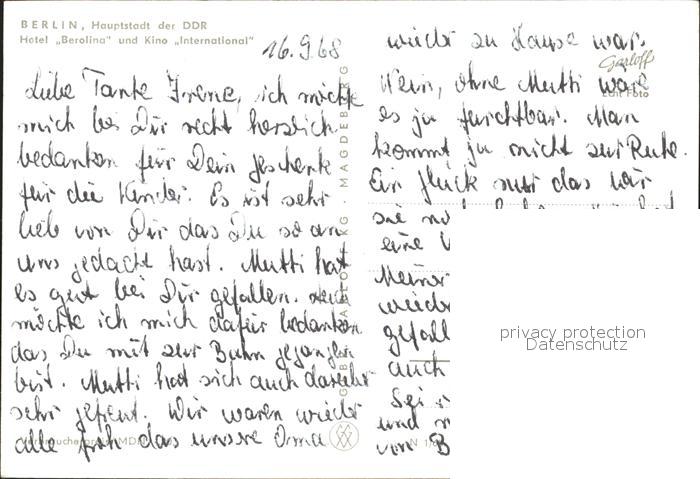 BERLIN, Hauptstadt der DDR
Hotel „Berolina" und Kino „International"
16.9.68
Liebe Tante Irene, ich möchte
mich bei Dir recht herzlich
bedanken für Dein Geschenk
für die Kinder. Es ist sehr
lieb von Dir das Du so an
uns gedacht hast. Mutti hat
es gut bei Dir gefallen. Auch
möchte ich mich dafür bedanken
das Du mit zur Bahn gegangen
bist. Mutti hat sich auch darüber
sehr gefreut. Wir waren wieder
alle froh das unsere Oma
wieder zu Hause war.
Garloff
Echt Foto
Nein, ohne Mutti wäre
es ja furchtbar. Man
kommt ja nicht zur Ruhe.
Ein Glück nur das wir
sie
eine
Meiner
wieder
gefall
auch
Sei
und
von B
MAGDEBURG
privacy protection
Datenschutz